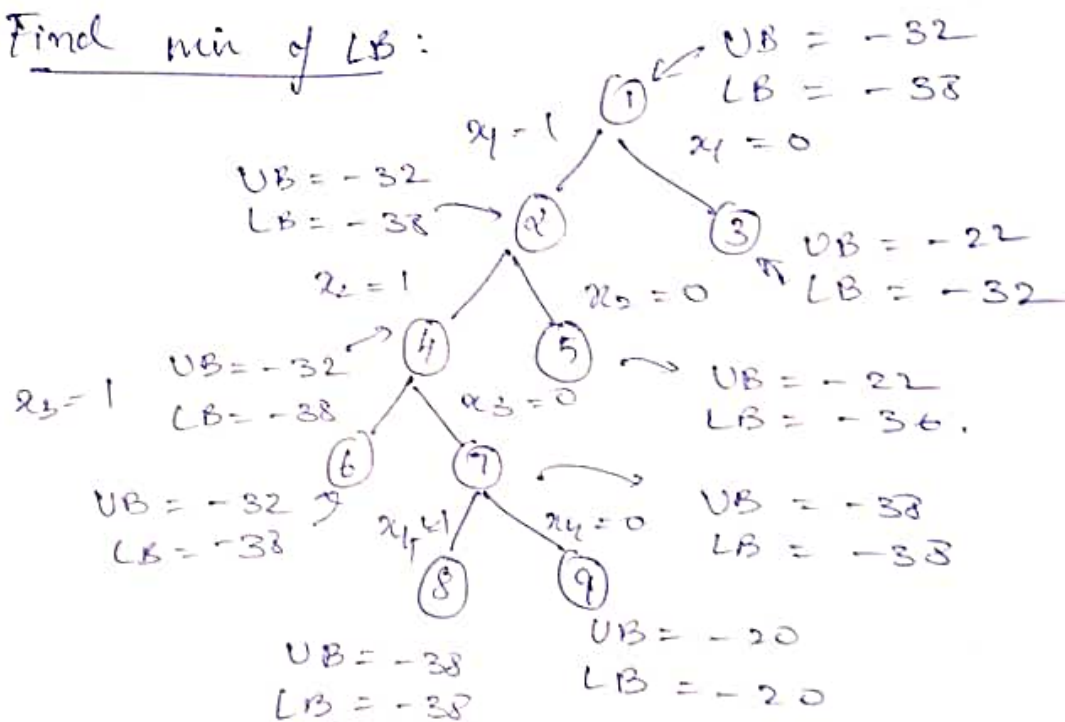 Find min of LB:
UB = -32
LB = -38
1
x1 = 1
x1 = 0
UB = -32
LB = -38
2
3
UB = -22
LB = -32
x2 = 1
x2 = 0
4
5
UB = -32
LB = -38
UB = -22
LB = -36.
x3 = 1
x3 = 0
6
7
UB = -32
LB = -38
UB = -38
LB = -38
x4 = 1
x4 = 0
8
9
UB = -38
LB = -38
UB = -20
LB = -20